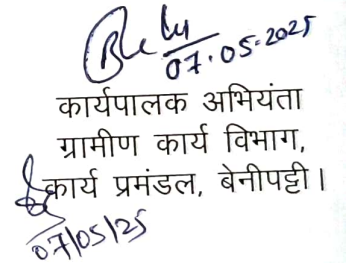 07.05.2025
कार्यपालक अभियंता
ग्रामीण कार्य विभाग,
कार्य प्रमंडल, बेनीपट्टी।
07/05/25